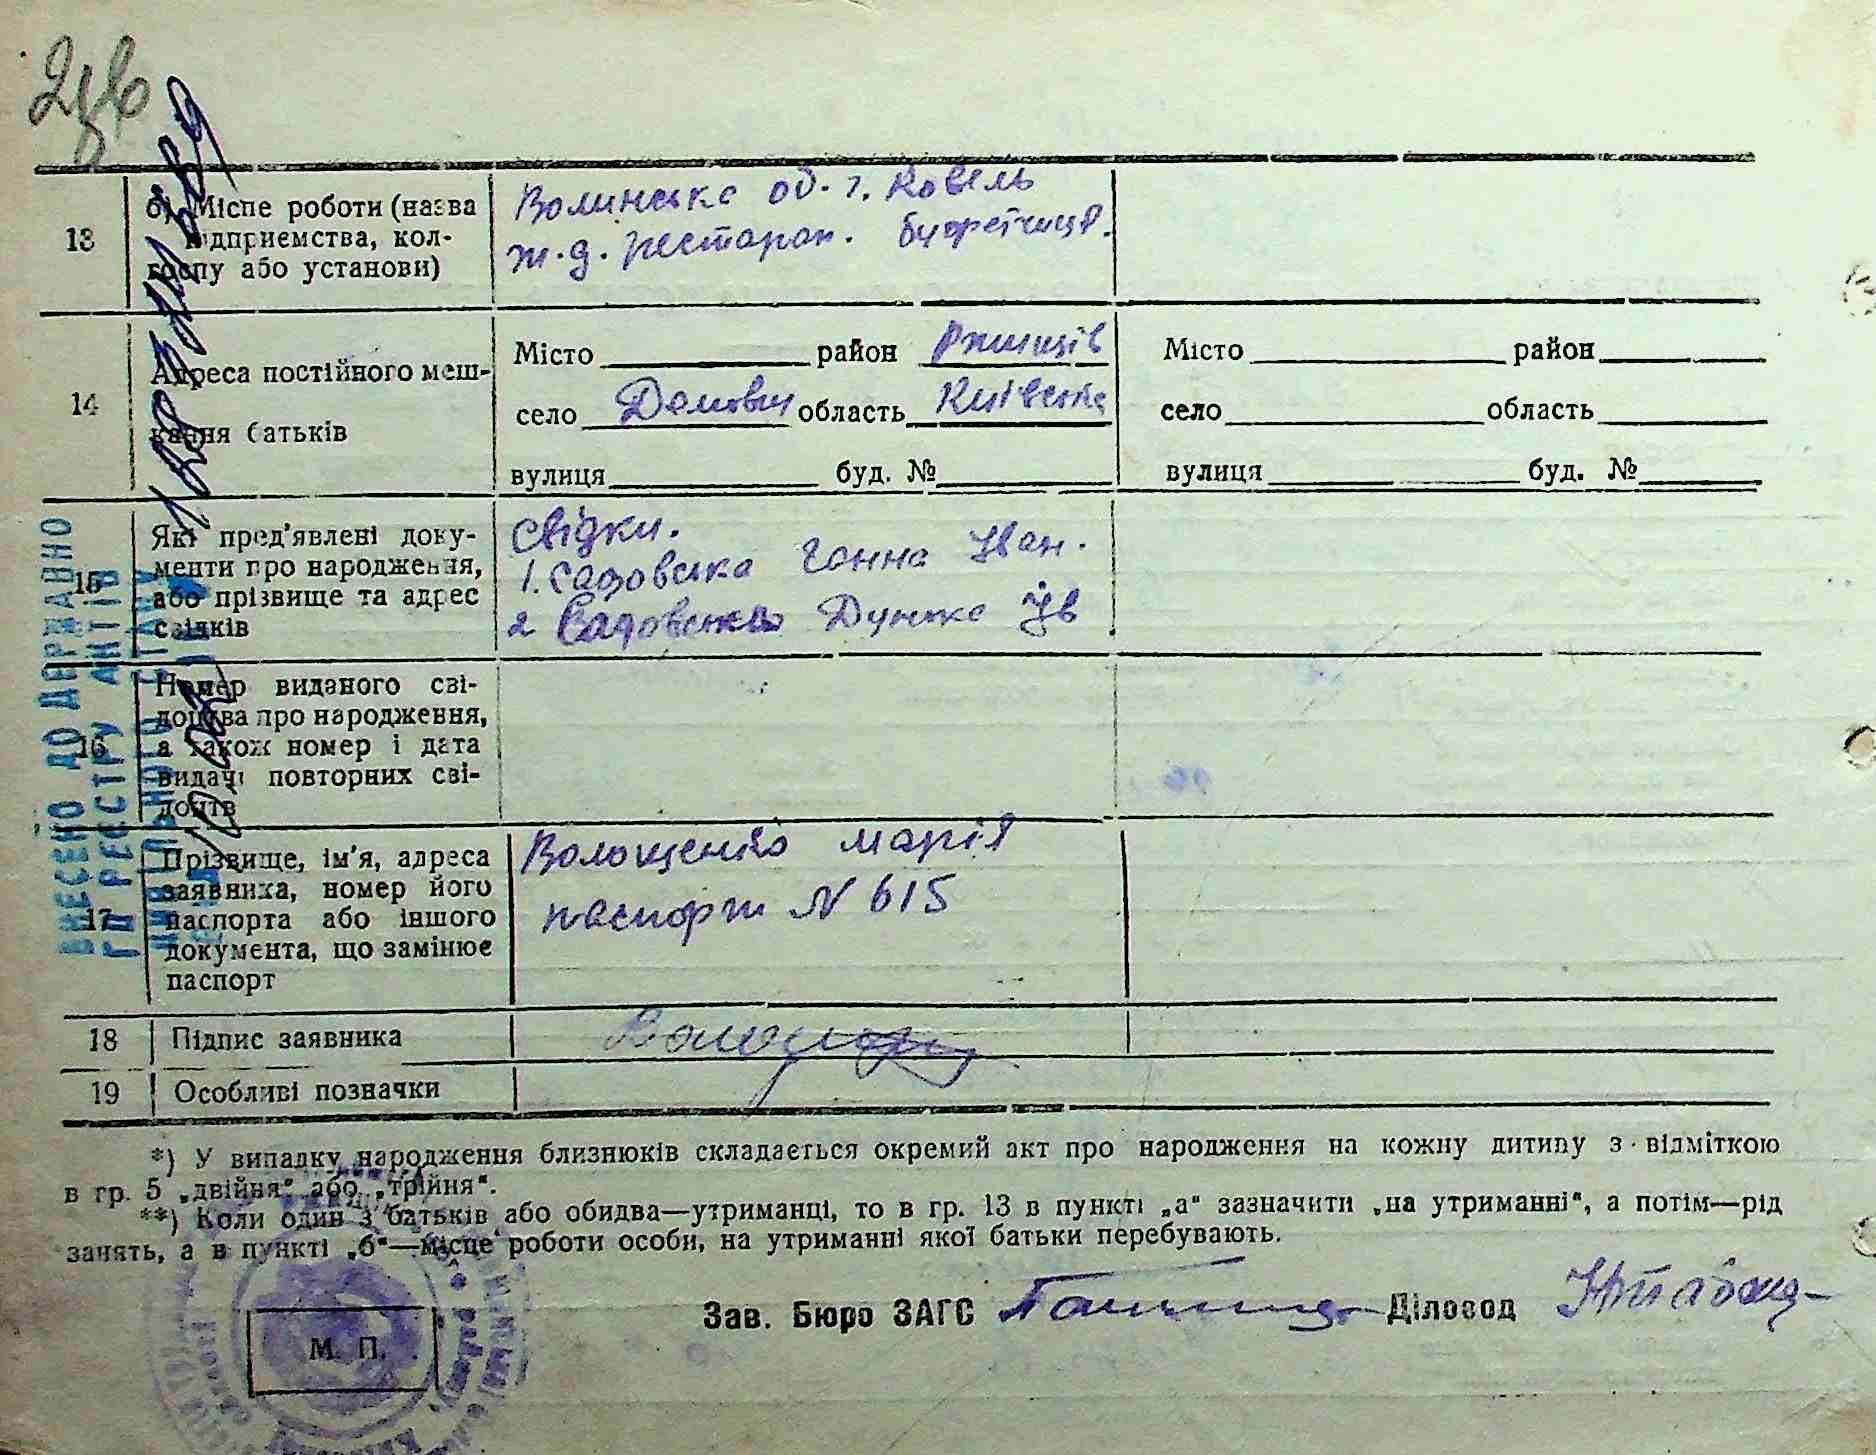 2зв
13
б) Місце роботи (назва
підприємства, кол-
госпу або установи)
Волинська об. г. Ковель
ж.д. ресторан. буфетчиця.
14
Адреса постійного меш-
кання батьків
Місто район Ржищів
село область Київська
вулиця буд. №
Місто район
село область
вулиця буд. №
15
Які пред'явлені доку-
менти про народження,
або прізвище та адрес
свідків
Свідки.
1. Садовська Ганна Іван.
2 Садовська Дунька Ів
16
Номер виданого сві-
доцтва про народження,
а також номер і дата
видачі повторних сві-
доцтв
17
Прізвище, ім'я, адреса
заявника, номер його
паспорта або іншого
документа, що замінює
паспорт
Волощенко Марія
паспорт N 615
18
Підпис заявника
19
Особливі позначки
*) У випадку народження близнюків складається окремий акт про народження на кожну дитину з відміткою
в гр. 5 „двійня" або „трійня".
**) Коли один з батьків або обидва—утриманці, то в гр. 13 в пункті „а" зазначити „на утриманні", а потім—рід
занять, а в пункті „б"—місце роботи особи, на утриманні якої батьки перебувають.
Зав. Бюро ЗАГС
Діловод
М. П.
ВНЕСЕНО ДО ДЕРЖАВНОГО
РЕЄСТРУ АКТІВ
ЦИВІЛЬНОГО СТАНУ